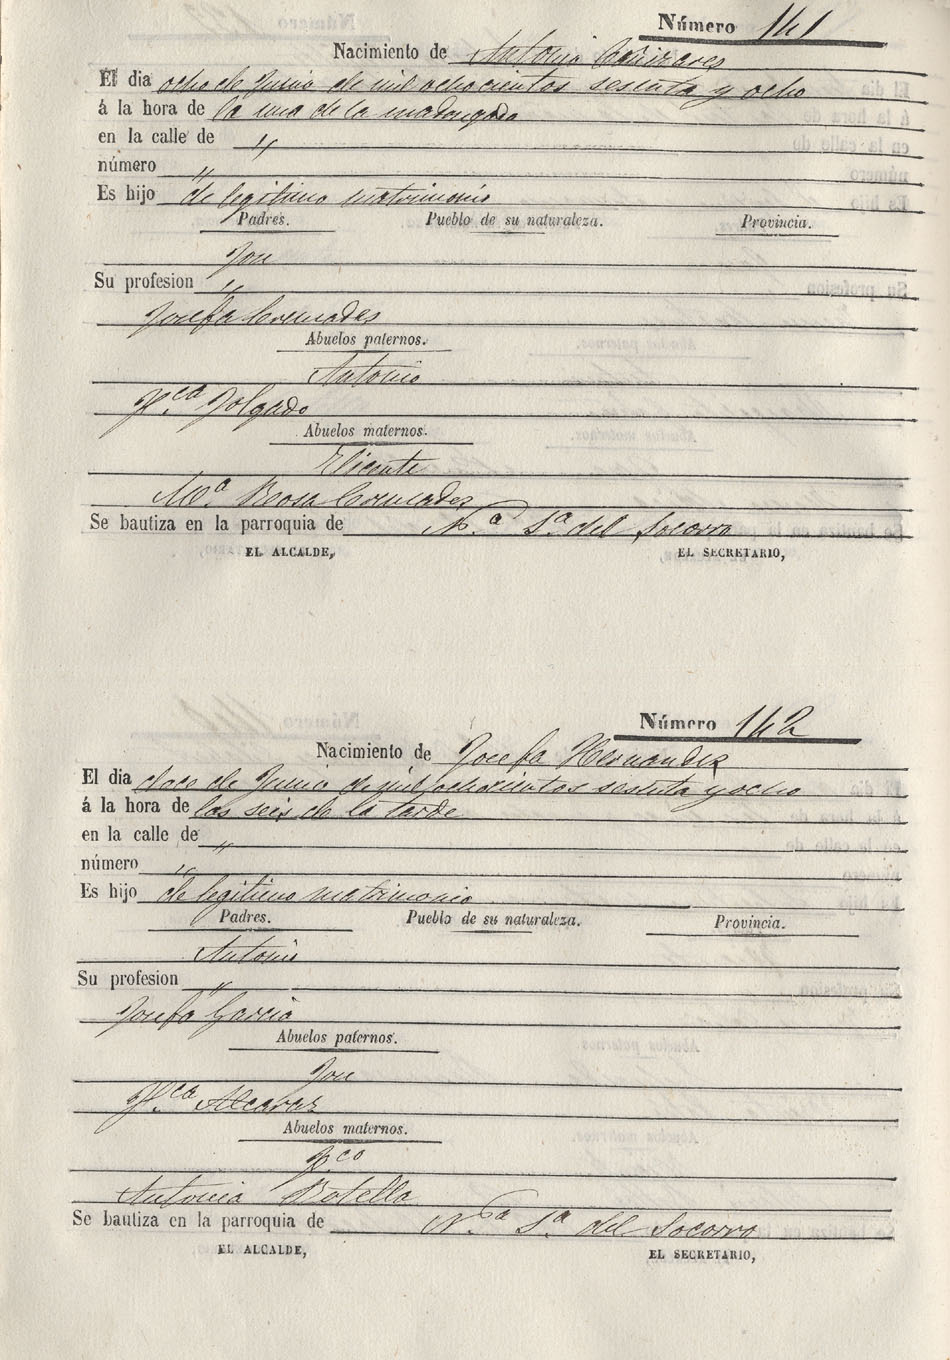 Número 141
Nacimiento de Antonio Cañizares
El dia ocho de Junio de mil ochocientos sesenta y ocho
á la hora de la una de la madrugada
en la calle de "
número "
Es hijo de legitimo matrimonio
Padres. Pueblo de su naturaleza. Provincia.
José
Su profesion "
Josefa Cremades
Abuelos paternos.
Antonio
Fca Folgado
Abuelos maternos.
Vicente
Ma Rosa Cremades
Se bautiza en la parroquia de Na Sa del Socorro
EL ALCALDE, EL SECRETARIO,
Número 142
Nacimiento de Josefa Hernandez
El dia doce de Junio de mil ochocientos sesenta y ocho
á la hora de las seis de la tarde
en la calle de "
número "
Es hijo de legitimo matrimonio
Padres. Pueblo de su naturaleza. Provincia.
Antonio
Su profesion "
Josefa Garcia
Abuelos paternos.
José
Fca Alcaraz
Abuelos maternos.
Fco
Antonia Botella
Se bautiza en la parroquia de Na Sa del Socorro
EL ALCALDE, EL SECRETARIO,